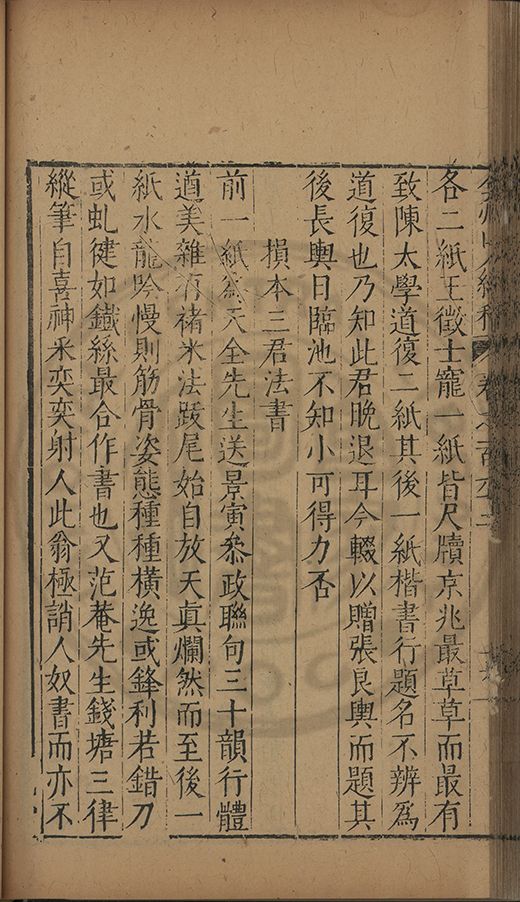 各二紙王徵士寵一紙皆尺牘京兆最草草而最有
致陳太學道復二紙其後一紙楷書行題名不辨為
道復也乃知此君晚退耳今輟以贈張良輿而題其
後長輿日臨池不知小可得力否
損本三君法書
前一紙為天全先生送景寅叅政聯句三十韻行體
遒美雜有褚米法跋尾始自放天真爛然而至後一
紙水龍吟慢則筋骨姿態種種橫逸或鋒利若錯刀
或虬健如鐵絲最合作書也又范菴先生錢塘三律
縱筆自喜神采奕奕射人此翁極誚人奴書而亦不